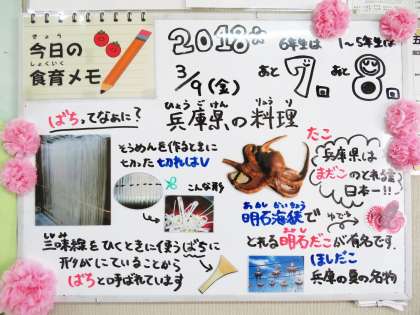 きょう
今日の
しょくいく
食育メモ
2018年
3/9(金)
6年生は
あと
7回
1～5年生は
あと
8回
ひょうごけん りょうり
兵庫県の料理
ばちってなぁに?
そうめんを作るときに
切った切れはし
こんな形
三味線をひくときに使うばちに
形がにていることから
ばちと呼ばれています
たこ
兵庫県は
まだこのとれる量
日本一!!
あかしかいきょう
明石海峡で
とれる明石だこが有名です。
ゆでだこ
ほしだこ
兵庫の夏の名物